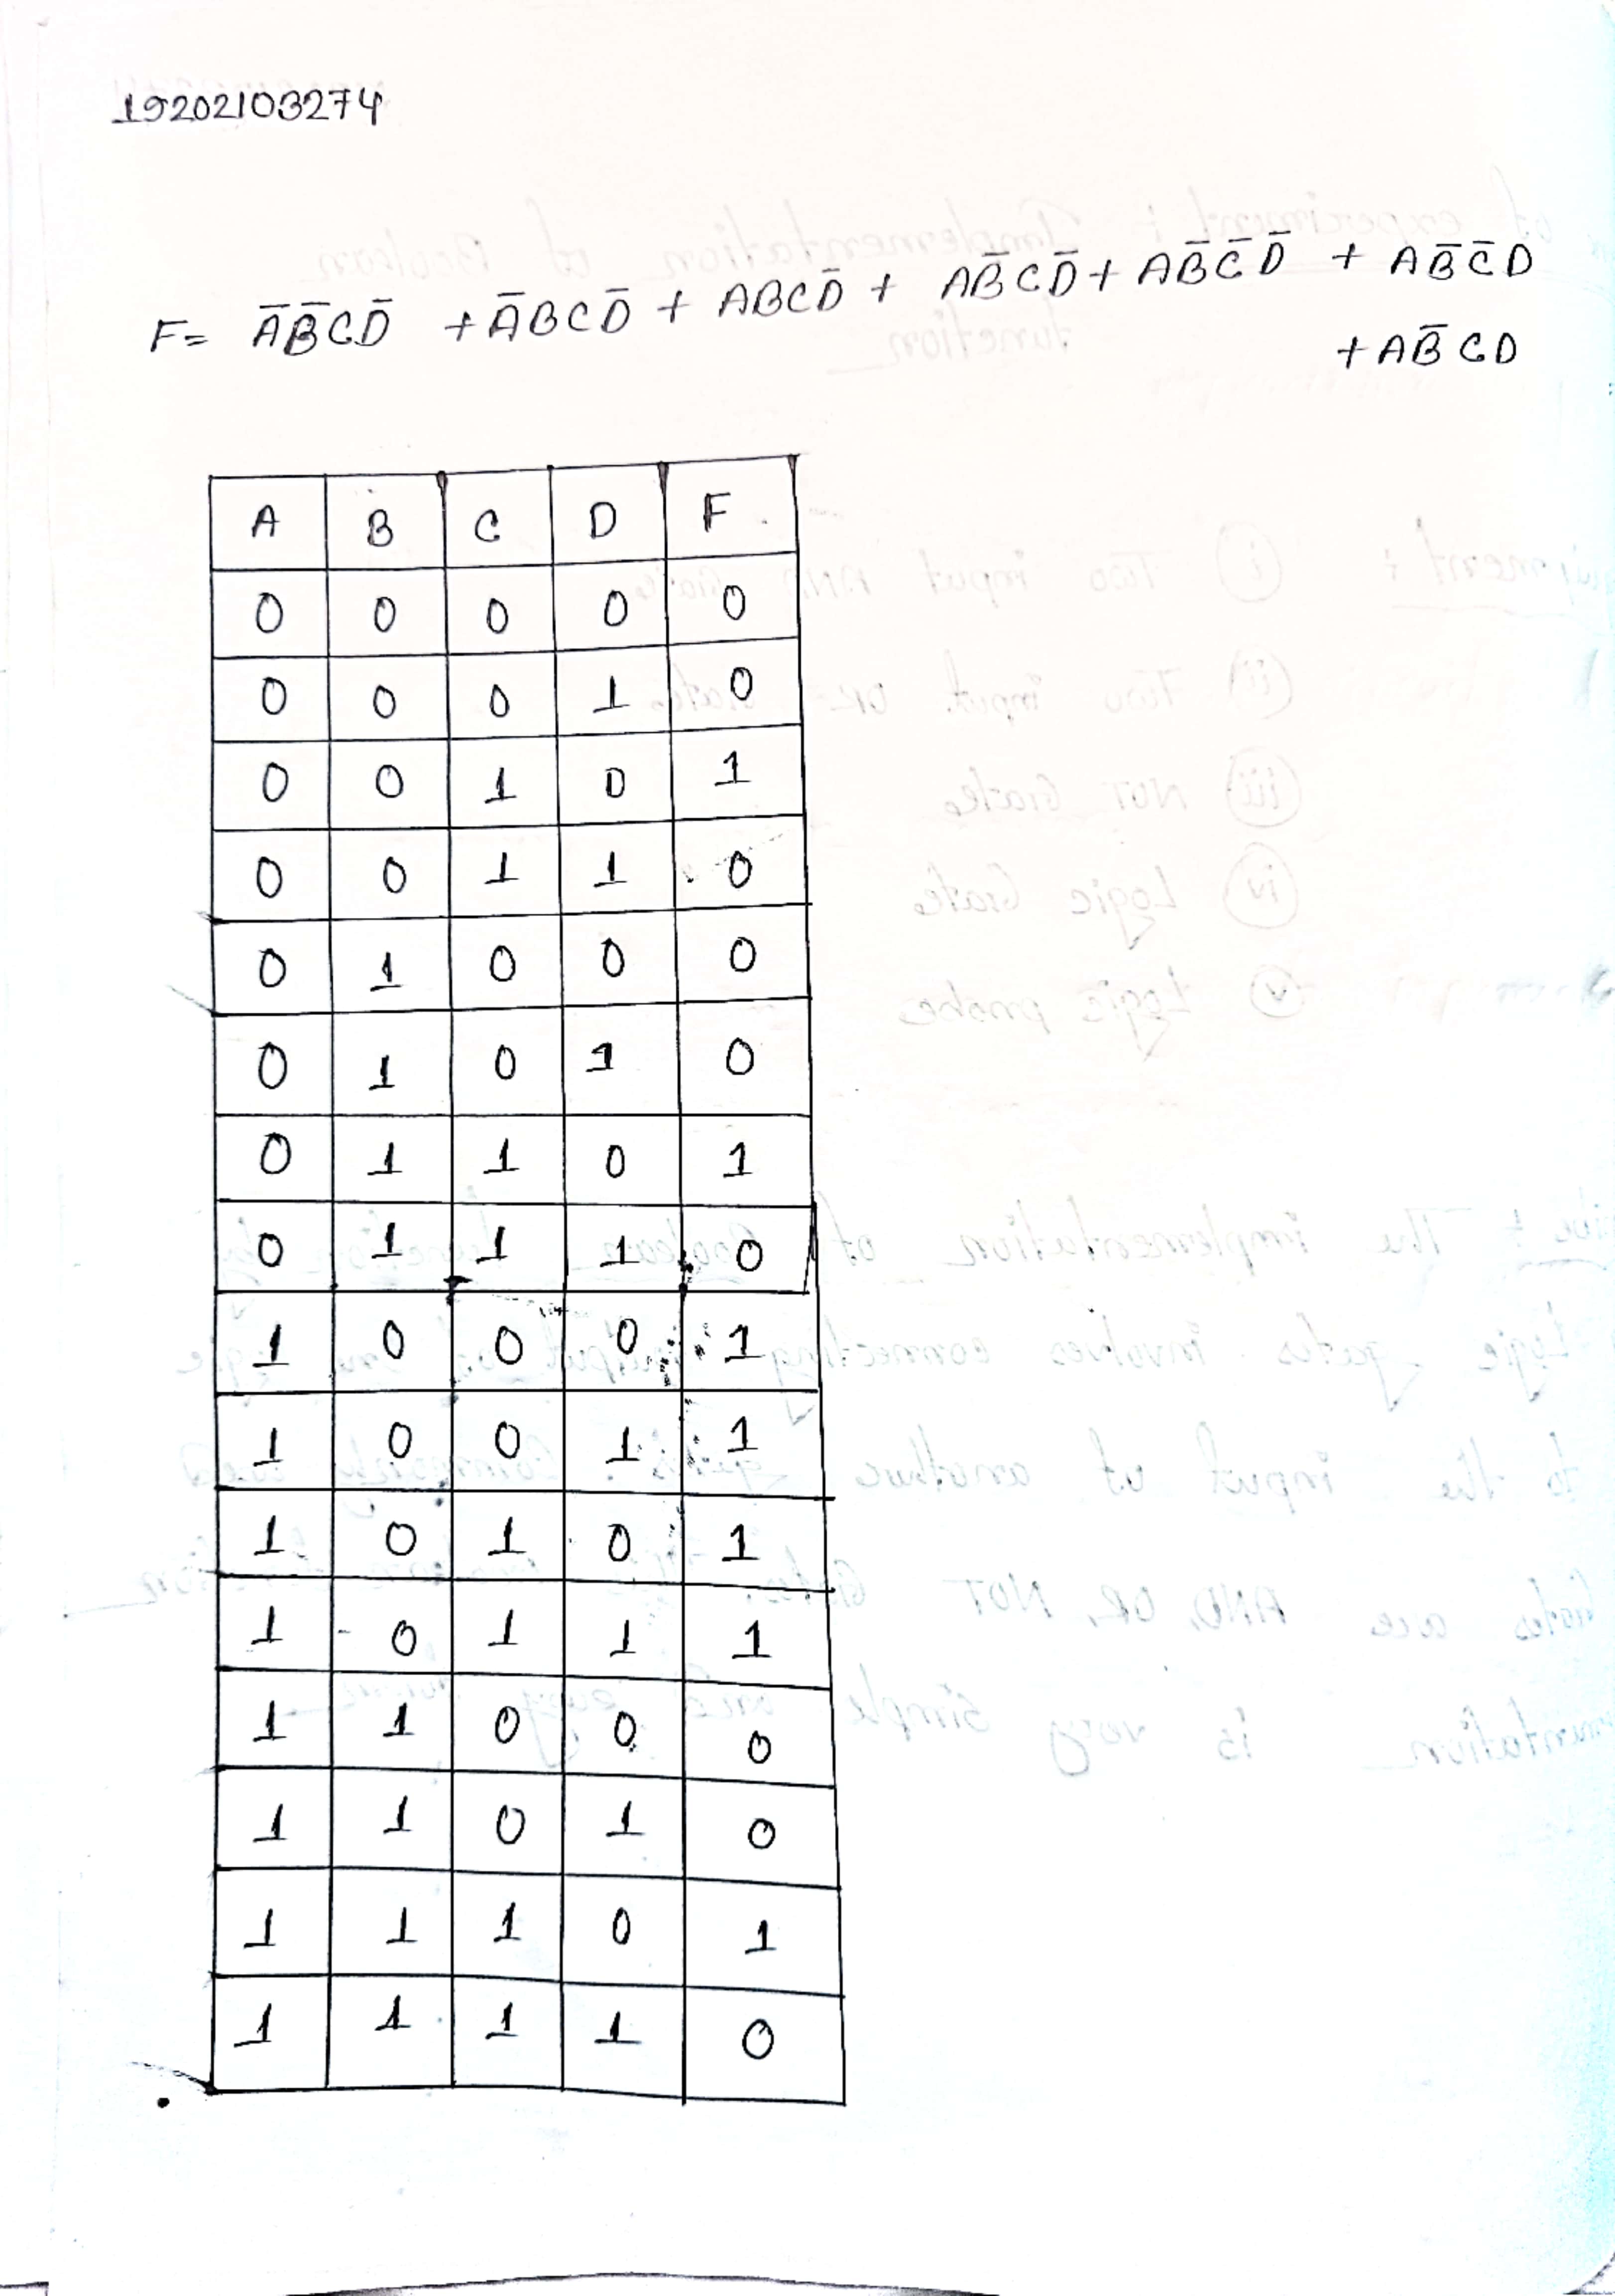 19202103274
F= A̅B̅CD̅ + A̅BCD̅ + ABCD̅ + AB̅CD̅ + AB̅C̅D̅ + AB̅C̅D
+ AB̅CD
A B C D F
0 0 0 0 0
0 0 0 1 0
0 0 1 0 1
0 0 1 1 0
0 1 0 0 0
0 1 0 1 0
0 1 1 0 1
0 1 1 1 0
1 0 0 0 1
1 0 0 1 1
1 0 1 0 1
1 0 1 1 1
1 1 0 0 0
1 1 0 1 0
1 1 1 0 1
1 1 1 1 0